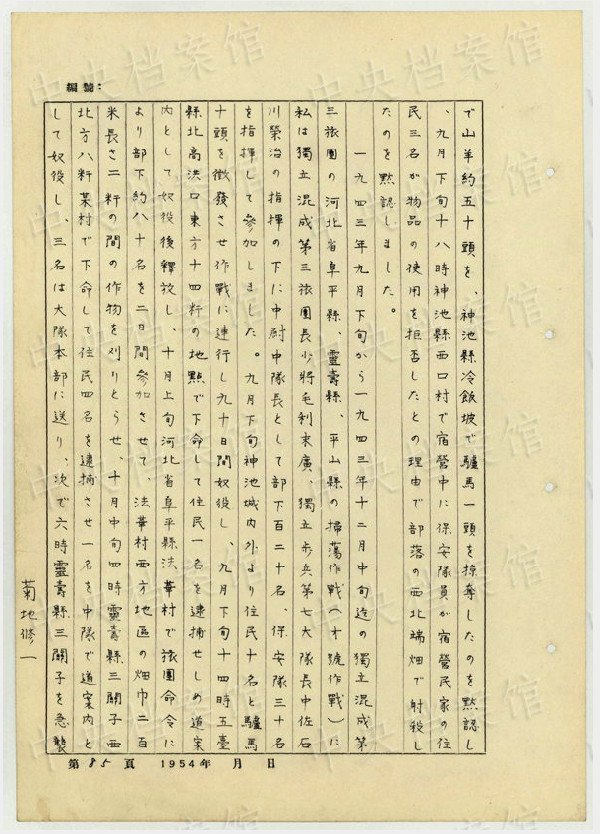 編號：
で山羊約五十頭を、神池縣冷飯坡で驢馬一頭を掠奪したのを黙認し
、九月下旬十八時神池縣西口村で宿營中に保安隊員が宿營民家の住
民三名が物品の使用を拒否したとの理由で部落の西北端畑で射殺し
たのを黙認しました。
一九四三年九月下旬から一九四三年十二月中旬迄の獨立混成第
三旅團の河北省阜平縣、靈壽縣、平山縣の掃蕩作戰（オ號作戰）に
私は獨立混成第三旅團長少將毛利末廣、獨立步兵第七大隊長中佐石
川榮治の指揮の下に中尉中隊長として部下百二十名、保安隊三十名
を指揮して參加しました。九月下旬神池城內外より住民十名と驢馬
十頭を徵發させ作戰に連行し九十日間奴役し、九月下旬十四時五臺
縣北高洪口東方十四粁の地點で下命して住民一名を逮捕せしめ道案
內として奴役後釋放し、十月上旬河北省阜平縣法華村で旅團命令に
より部下約八十名を二日間參加させて、法華村西方地區の畑巾二百
米長さ二粁の間の作物を刈りとらせ、十月中旬四時靈壽縣三關子西
北方八粁某村で下命して住民四名を逮捕させ一名を中隊で道案內と
して奴役し、三名は大隊本部に送り、次で六時靈壽縣三關子を急襲
菊地修一
第85頁 1954年 月 日
中央档案馆